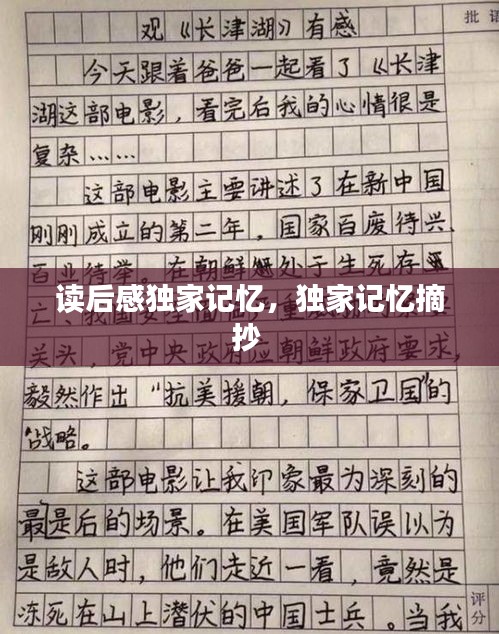 批语
观《长津湖》有感
今天跟着爸爸一起看了《长津
湖这部电影，看完后我的心情很是
复杂……
这部电影主要讲述了在新中国
刚刚成立的第二年，国家百废待兴、
百业待举。在朝鲜处于生死存
读后感独家记忆，独家记忆摘
抄
亡、我国安全面临重
关头，党中央政府应朝鲜政府要求，
毅然作出“抗美援朝，保家卫国”的
战略。
这部电影让我印象最为深刻的
最是后的场景。在美国军队误以为
是敌人时，他们走近一看，竟然是
冻死在山上潜伏的中国士兵。当我
评分